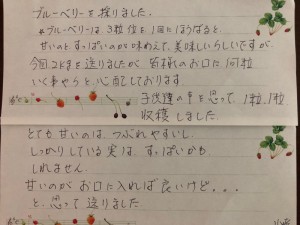 ブルーベリーを採りました。
*ブルーベリーは3粒位を1回にほうばると、
甘いのとすっぱいのが味わえて、美味しいらしいですが、
今回2kgを送りましたが 皆様のお口に何粒
いくやらと、心配しております
子供達の事を思って、1粒、1粒、
収穫しました
とても甘いのは、つぶれやすいし、
しっかりしている実は、すっぱいかも
しれません。
甘いのがお口に入れば良いけど。。。
と思って送りました